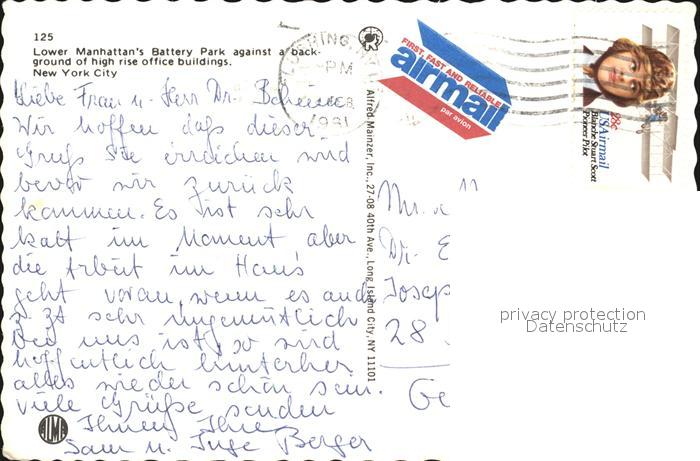 125
Lower Manhattan's Battery Park against a back-
ground of high rise office buildings.
New York City
Liebe Frau u. Herr Dr.
Wir hoffen daß dieser
Gruß Sie erreichen wird
bevor wir zurück
kommen. Es ist sehr
kalt im Moment aber
die Arbeit im Haus
geht voran, wenn es auch
z. Zt sehr ungemütlich
bei uns ist, so wird
hoffentlich hinterher
alles wieder schön sein.
viele Grüße senden
Ihnen Ihre
Sam u. Inge Berger
ALMA
Alfred Mainzer, Inc., 27-08 40th Ave., Long Island City, NY 11101
FLUSHING,
PM
1981
FIRST, FAST AND RELIABLE
airmail
par avion
28c
USAirmail
Blanche Stuart Scott
Pioneer Pilot
Mr. u
Dr. E
Josep
28
Ge
privacy protection
Datenschutz